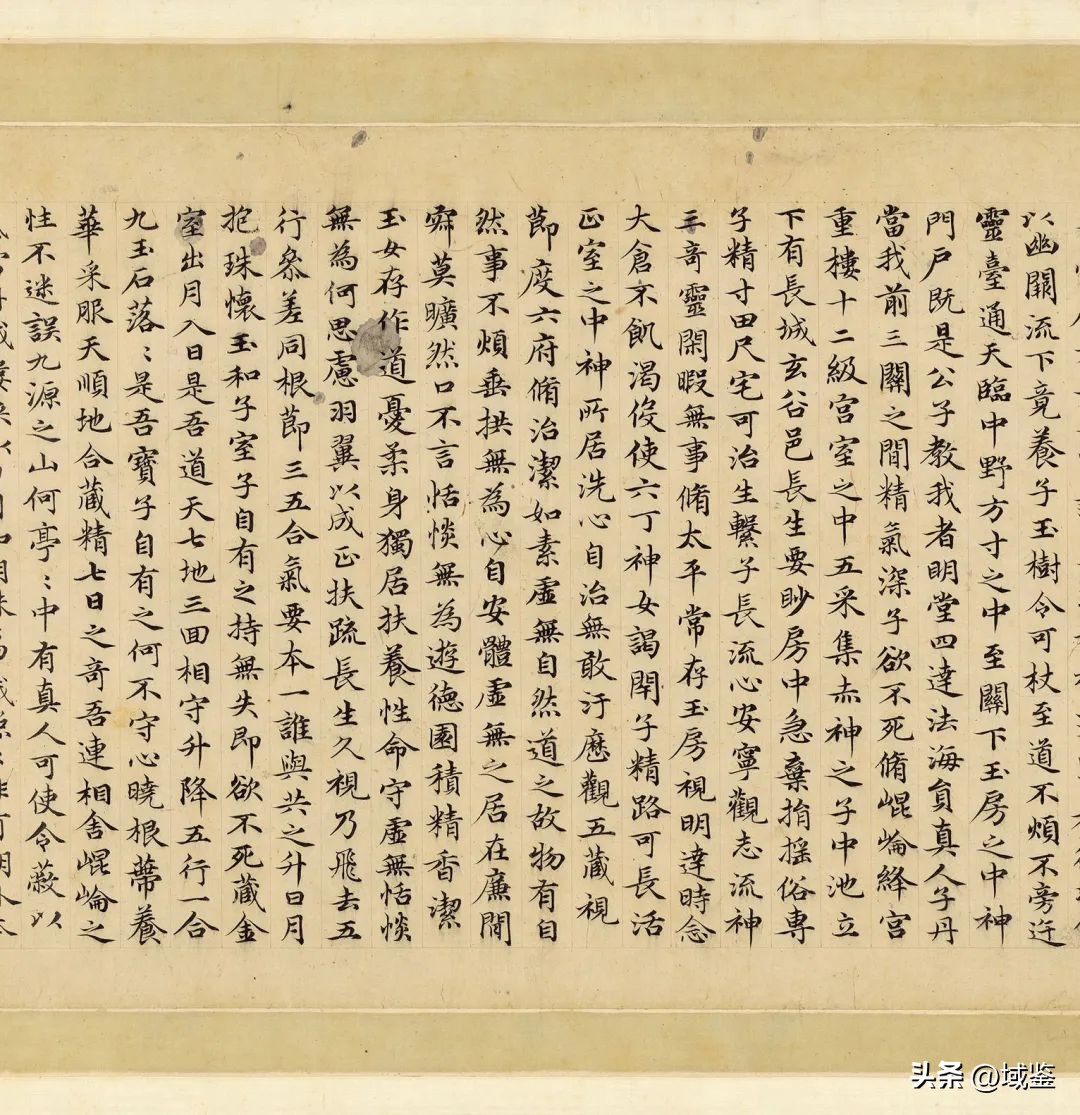 以幽關流下竟養子玉樹令可杖至道不煩不旁迕
靈臺通天臨中野方寸之中至關下玉房之中神
門戶既是公子教我者明堂四達法海員真人子丹
當我前三關之間精氣深子欲不死脩崐崘絳宮
重樓十二級宮室之中五采集赤神之子中池立
下有長城玄谷邑長生要眇房中急棄捐搖俗專
子精寸田尺宅可治生繫子長流心安寧觀志流神
三奇靈閑暇無事脩太平常存玉房視明達時念
大倉不飢渴役使六丁神女謁閉子精路可長活
正室之中神所居洗心自治無敢汙歷觀五藏視
節度六府脩治潔如素虛無自然道之故物有自
然事不煩垂拱無為心自安體虛無之居在廉間
寂莫曠然口不言恬惔無為遊德園積精香潔
玉女存作道憂柔身獨居扶養性命守虛無恬惔
無為何思慮羽翼以成正扶疏長生久視乃飛去五
行參差同根節三五合氣要本一誰與共之升日月
抱珠懷玉和子室子自有之持無失即欲不死藏金
室出月入日是吾道天七地三回相守升降五行一合
九玉石落〻是吾寶子自有之何不守心曉根蔕養
華采服天順地合藏精七日之奇吾連相舍崐崘之
性不迷誤九源之山何亭〻中有真人可使令蔽以
头条 @域鉴